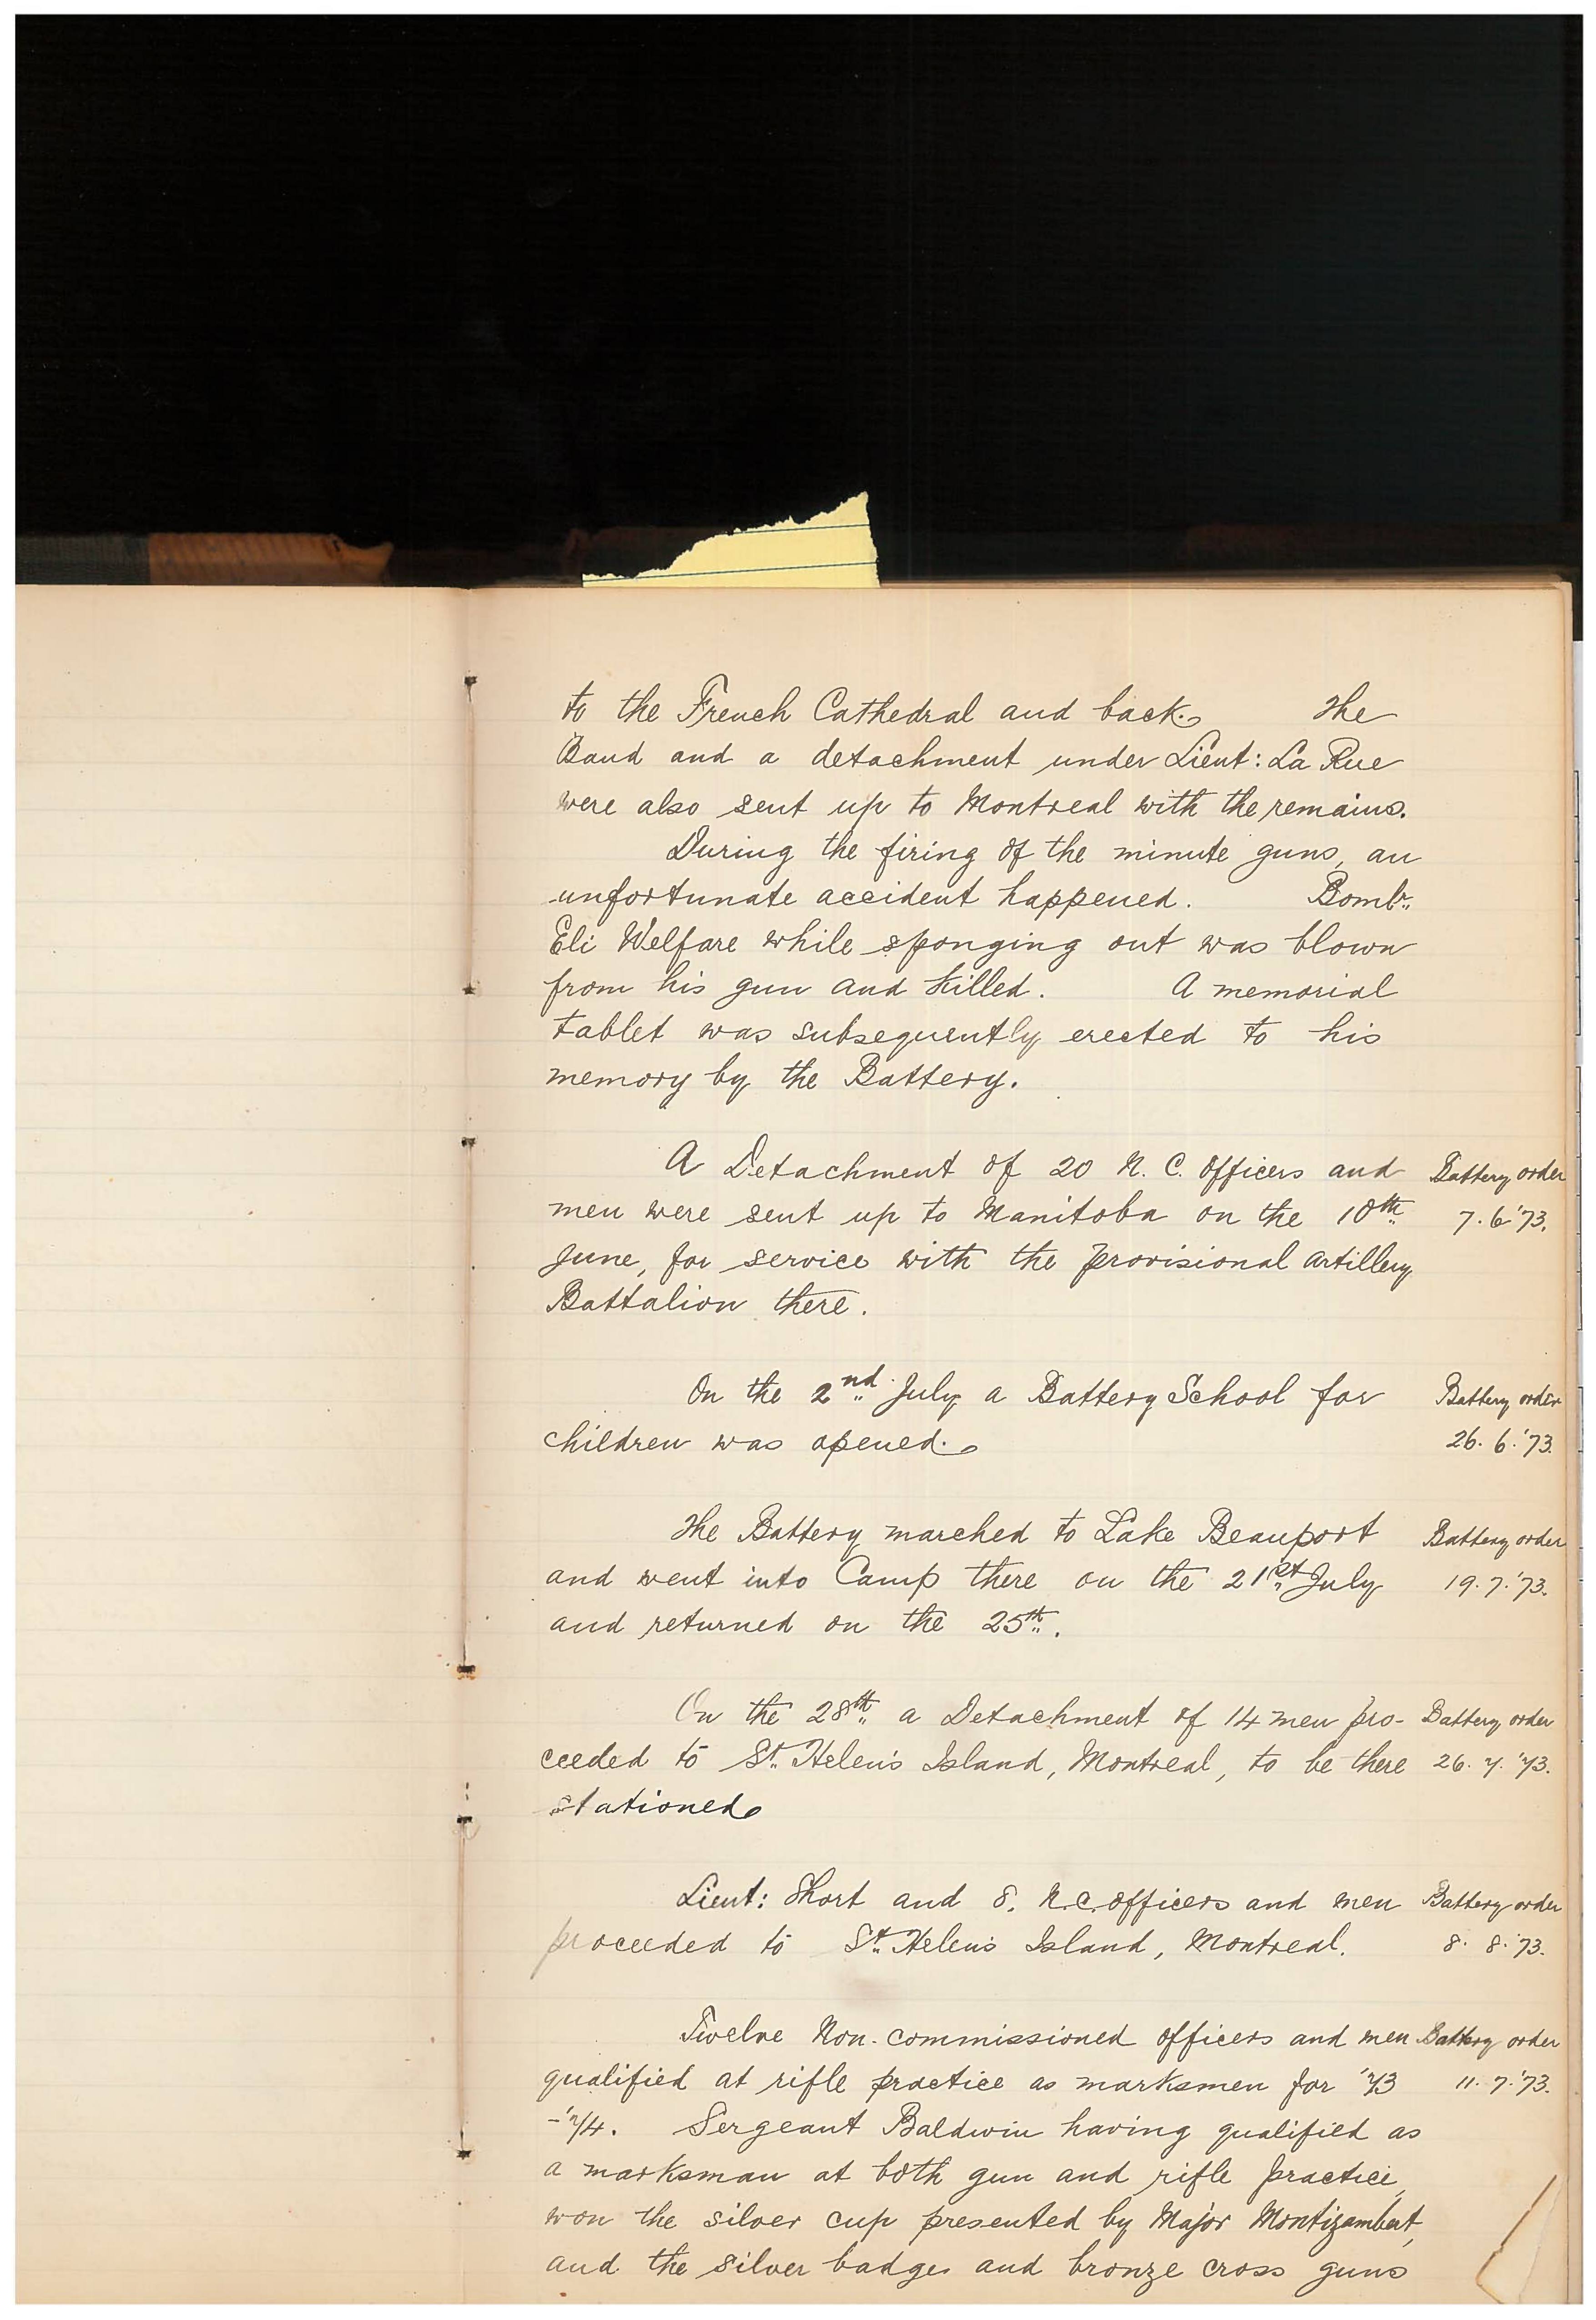 to the French Cathedral and back. The
Band and a detachment under Lieut: La Rue
were also sent up to Montreal with the remains.
During the firing of the minute guns, an
unfortunate accident happened. Bombr.
Eli Welfare while sponging out was blown
from his gun and killed. A memorial
tablet was subsequently erected to his
memory by the Battery.
A Detachment of 20 N. C. Officers and Battery order
men were sent up to Manitoba on the 10th 7. 6 '73.
June, for service with the provisional artillery
Battalion there.
On the 2nd July a Battery School for Battery order
children was opened. 26. 6. '73.
The Battery marched to Lake Beauport Battery order
and went into Camp there on the 21st July 19. 7. '73.
and returned on the 25th.
On the 28th a Detachment of 14 men pro- Battery order
ceeded to St. Helen's Island, Montreal, to be there 26. 7. '73.
stationed
Lieut: Short and 8. N.C. officers and men Battery order
proceeded to St. Helen's Island, Montreal. 8. 8. '73.
Twelve Non-commissioned officers and men Battery order
qualified at rifle practice as marksmen for '73 11. 7. '73.
-'74. Sergeant Baldwin having qualified as
a marksman at both gun and rifle practice,
won the silver cup presented by Major Montizambert,
and the silver badge and bronze cross guns